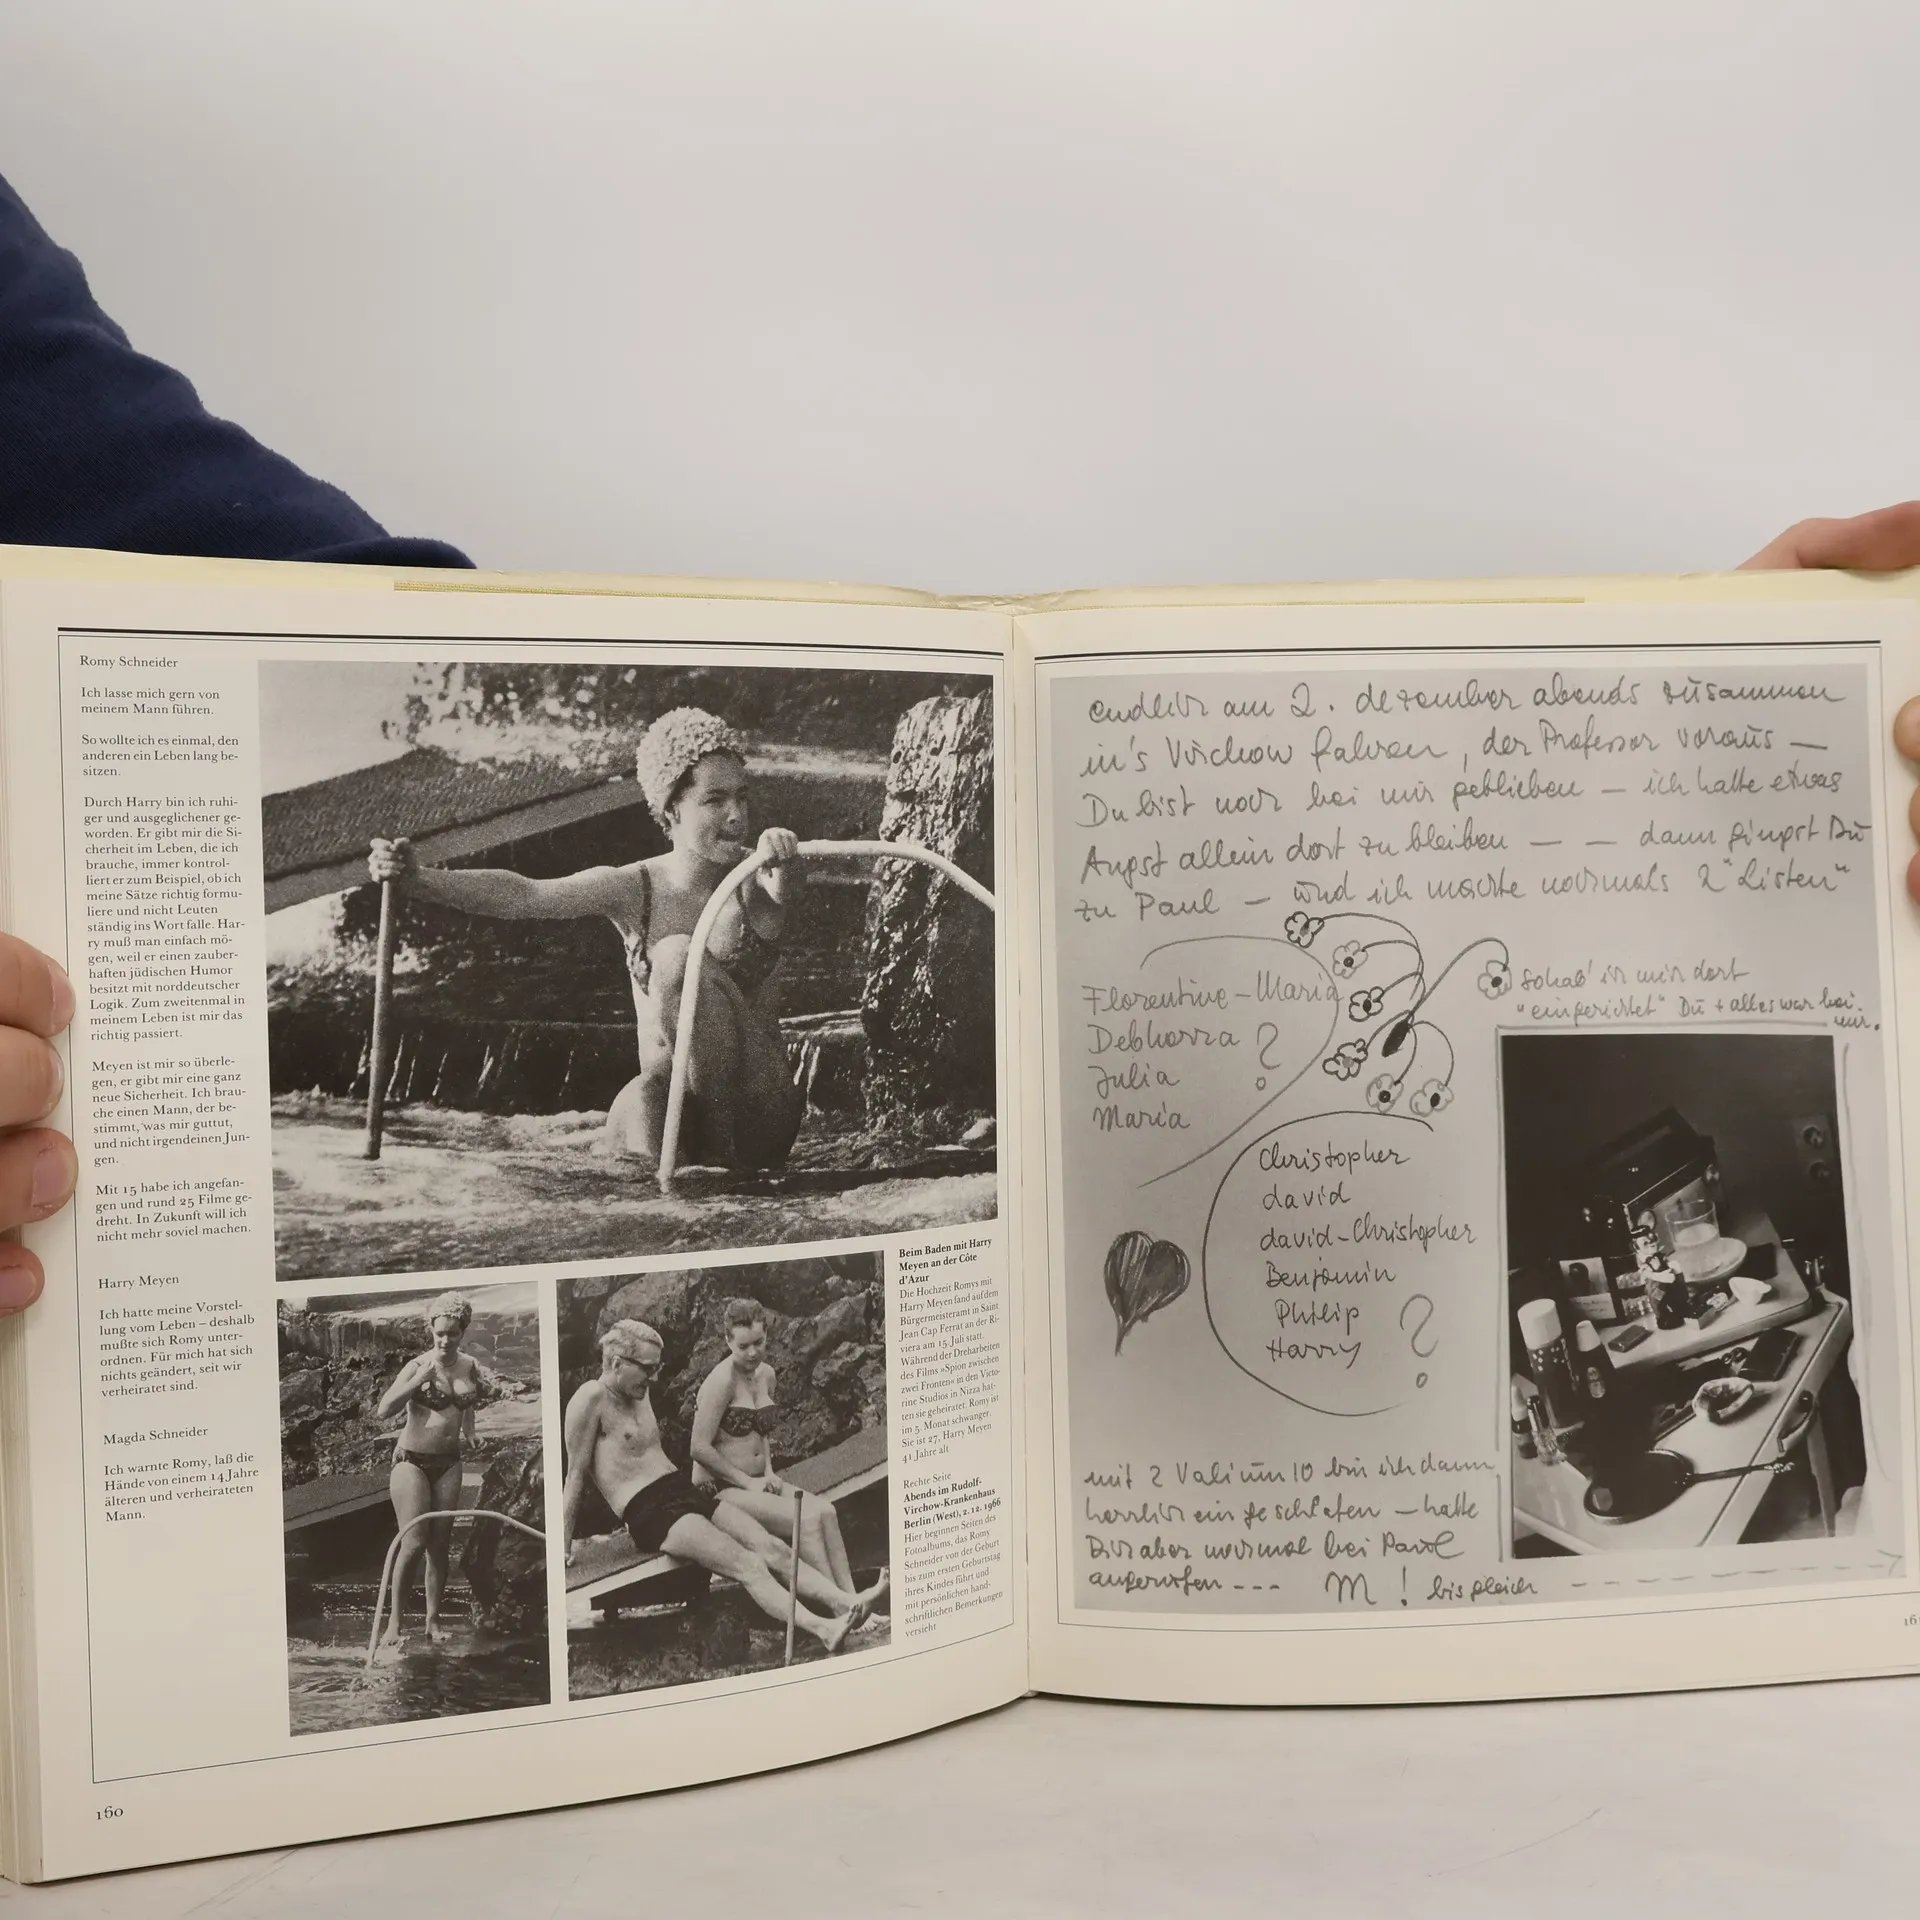 Romy Schneider
Ich lasse mich gern von
meinem Mann führen.
So wollte ich es einmal, den
anderen ein Leben lang be-
sitzen.
Durch Harry bin ich ruhi-
ger und ausgeglichener ge-
worden. Er gibt mir die Si-
cherheit im Leben, die ich
brauche, immer kontrol-
liert er zum Beispiel, ob ich
meine Sätze richtig formu-
liere und nicht Leuten
ständig ins Wort falle. Har-
ry muß man einfach mö-
gen, weil er einen zauber-
haften jüdischen Humor
besitzt mit norddeutscher
Logik. Zum zweitenmal in
meinem Leben ist mir das
richtig passiert.
Meyen ist mir so überle-
gen, er gibt mir eine ganz
neue Sicherheit. Ich brau-
che einen Mann, der be-
stimmt, was mir guttut,
und nicht irgendeinen Jun-
gen.
Mit 15 habe ich angefan-
gen und rund 25 Filme ge-
dreht. In Zukunft will ich
nicht mehr soviel machen.
Harry Meyen
Ich hatte meine Vorstel-
lung vom Leben – deshalb
mußte sich Romy unter-
ordnen. Für mich hat sich
nichts geändert, seit wir
verheiratet sind.
Magda Schneider
Ich warnte Romy, laß die
Hände von einem 14 Jahre
älteren und verheirateten
Mann.
Beim Baden mit Harry
Meyen an der Côte
d'Azur
Die Hochzeit Romys mit
Harry Meyen fand auf dem
Bürgermeisteramt in Saint
Jean Cap Ferrat an der Ri-
viera am 15. Juli statt.
Während der Dreharbeiten
des Films »Spion zwischen
zwei Fronten« in den Victo-
rine Studios in Nizza hat-
ten sie geheiratet. Romy ist
im 5. Monat schwanger.
Sie ist 27, Harry Meyen
41 Jahre alt
Rechte Seite
Abends im Rudolf-
Virchow-Krankenhaus
Berlin (West), 2. 12. 1966
Hier beginnen Seiten des
Fotoalbums, das Romy
Schneider von der Geburt
bis zum ersten Geburtstag
ihres Kindes führt und
mit persönlichen hand-
schriftlichen Bemerkungen
versieht
160
endlich am 2. dezember abends zusammen
in's Virchow fahren, der Professor voraus —
Du bist noch bei mir geblieben — ich hatte etwas
Angst allein dort zu bleiben — — dann gingst Du
zu Paul — und ich machte nochmals 2 "Listen"
Florentine-Maria
Debhorra
Julia ?
Maria
so hab' ich mir dort
"eingerichtet" Du + alles war bei
mir.
Christopher
david
david-Christopher
Benjamin
Philip
Harry ?
mit 2 Valium 10 bin ich dann
herrlich eingeschlafen — hatte
Dich aber nochmal bei Paul
angerufen --- M! bis gleich